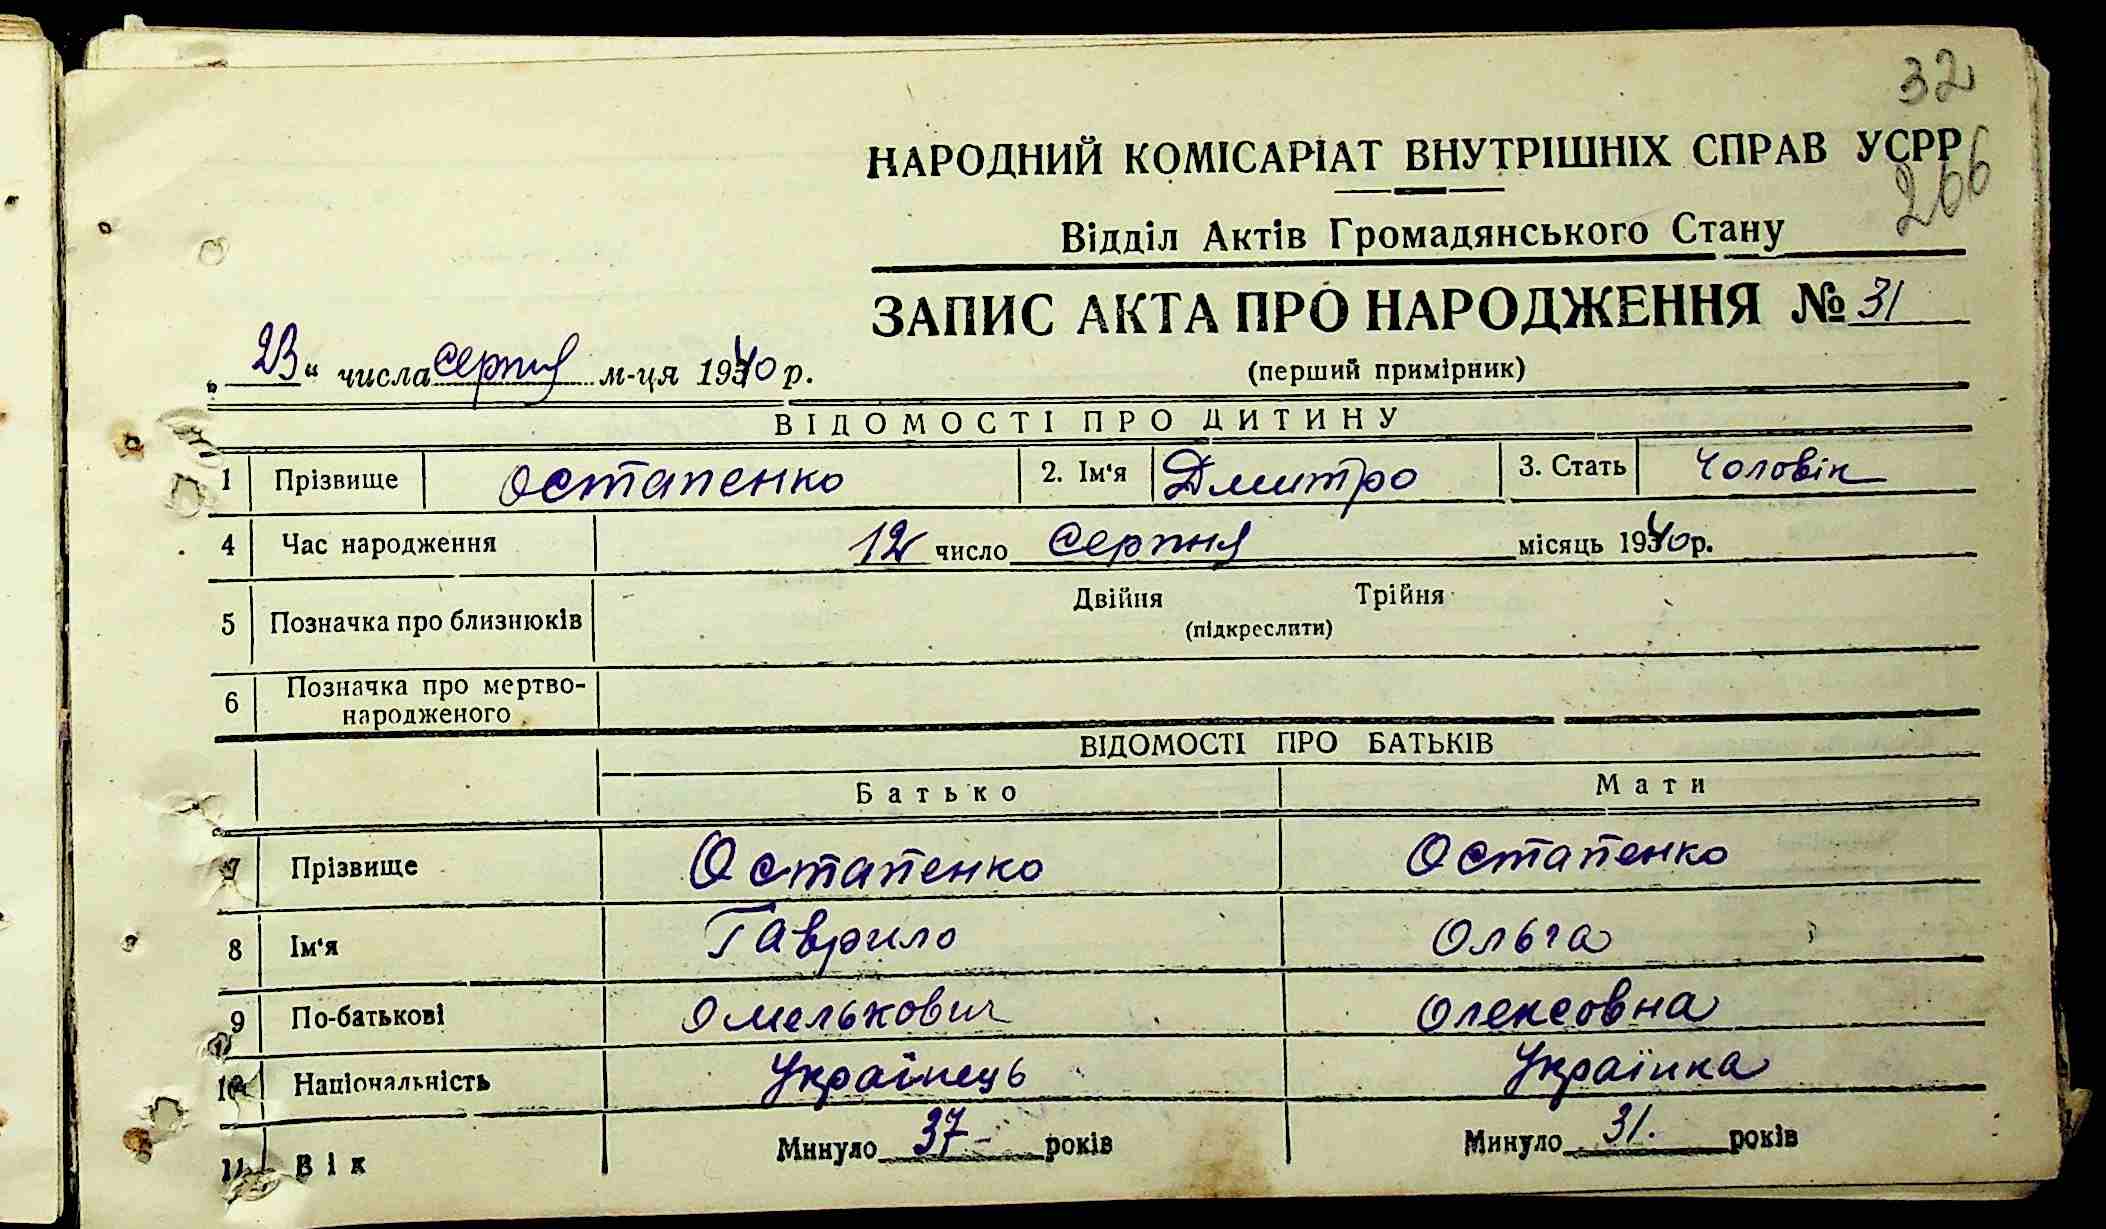 32
НАРОДНИЙ КОМІСАРІАТ ВНУТРІШНІХ СПРАВ УСРР
266
Відділ Актів Громадянського Стану
ЗАПИС АКТА ПРО НАРОДЖЕННЯ № 31
„23“ числа серпня м-ця 1940 р.
(перший примірник)
ВІДОМОСТІ ПРО ДИТИНУ
1 Прізвище Остапенко 2. Ім'я Дмитро 3. Стать Чоловік
4 Час народження 12 число серпня місяць 1940 р.
5 Позначка про близнюків Двійня Трійня
(підкреслити)
6 Позначка про мертво-
народженого
ВІДОМОСТІ ПРО БАТЬКІВ
Батько Мати
7 Прізвище Остапенко Остапенко
8 Ім'я Гаврило Ольга
9 По-батькові Омелькович Олексовна
10 Національність Українець Українка
11 Вік Минуло 37 років Минуло 31. років